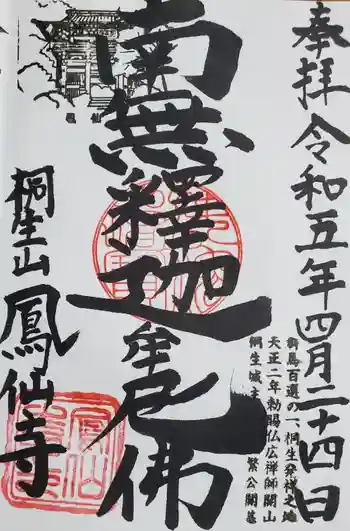 奉拝 令和五年四月二十四日
群馬百選の一、桐生発祥之地
天正二年勅賜仏広禅師開山
桐生城主 繁公開基
南無釋迦牟尼佛
桐生山 鳳仙寺